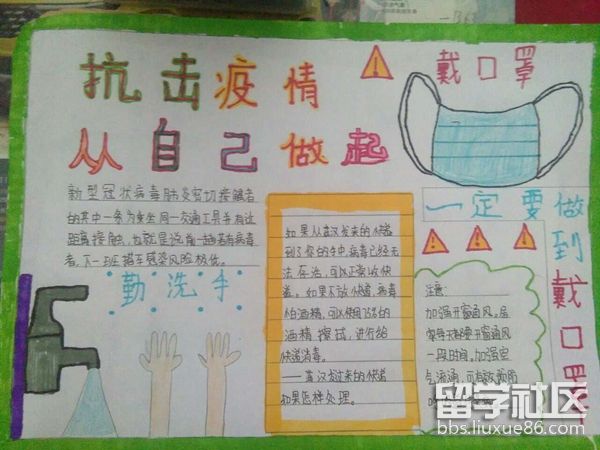 抗击疫情
从自己做起
戴口罩
新型冠状病毒肺炎密切接触者
的其中一条为乘坐同一交通工具并有近
距离接触,也就是说前一趟若有病毒
者,下一班搭车感染风险极低。
勤洗手
如果从武汉发来的快递
到了你的手中,病毒已经无
法存活,可以正常收快
递。如果不放心,病毒
怕酒精,可以使用75%的
酒精擦拭,进行给
快递消毒。
——武汉发过来的快递
如果怎样处理。
一定要做
到戴口罩
注意:
加强开窗通风,居
家每天都要开窗通风
一段时间,加强空
气流通,可有效预防
留学社区
bbs.liuxue86.com